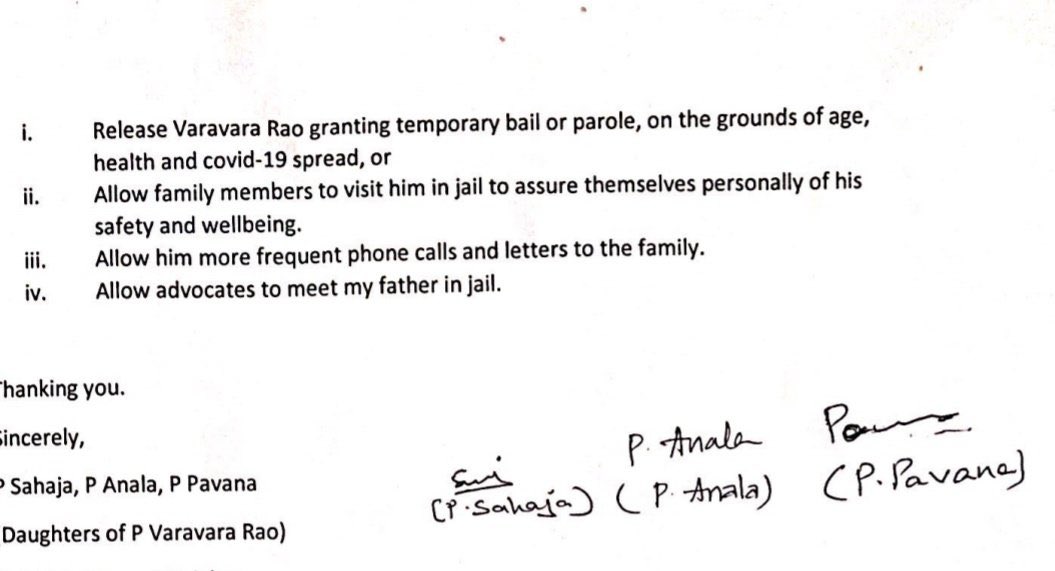 i. Release Varavara Rao granting temporary bail or parole, on the grounds of age,
health and covid-19 spread, or
ii. Allow family members to visit him in jail to assure themselves personally of his
safety and wellbeing.
iii. Allow him more frequent phone calls and letters to the family.
iv. Allow advocates to meet my father in jail.
hanking you.
incerely,
P Sahaja, P Anala, P Pavana
Daughters of P Varavara Rao)
P. Anala
(P. Sahaja) (P. Anala) (P. Pavana)